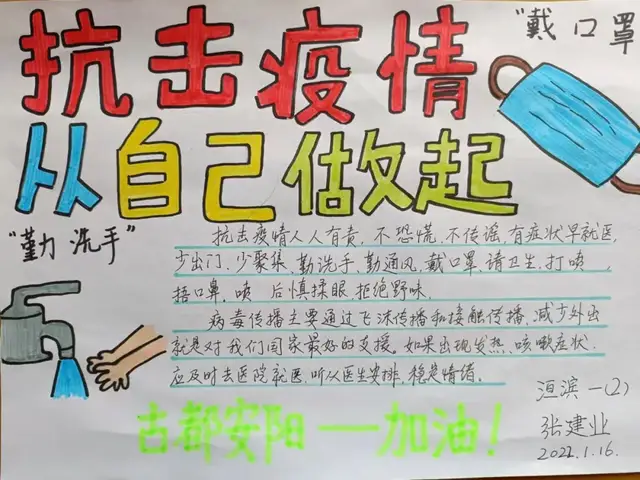 抗击疫情
"戴口罩
从自己做起
"勤洗手"
抗击疫情人人有责,不恐慌,不传谣,有症状早就医,
少出门,少聚集,勤洗手,勤通风,戴口罩,请卫生,打喷,
捂口鼻,喷 后慎揉眼,拒绝野味.
病毒传播主要通过飞沫传播和接触传播.减少外出
就是对我们国家最好的支援。如果出现发热、咳嗽症状.
应及时去医院就医.听从医生安排,稳定情绪。
洹滨一(2)
古都安阳——加油!
张建业
2022.1.16.